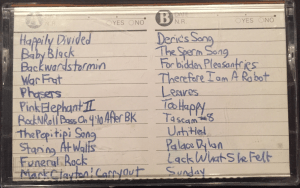 YES NO
Happily Divided
Baby Black
Backwardstormin
War Frat
Phasers
Pink Elephant II
Rock N Roll Bass On 4-10 After BK
The Popitipi Song
Staring At Walls
Funeral Rock
Mark Clayton! Carry out
B
N.R. YES NO
Deric's Song
The Sperm Song
Forbidden Pleasantries
Therefore I Am A Robot
Leaves
Too Happy
Tascam #8
Untitled
Palace Dylan
Lack What She Felt
Sunday